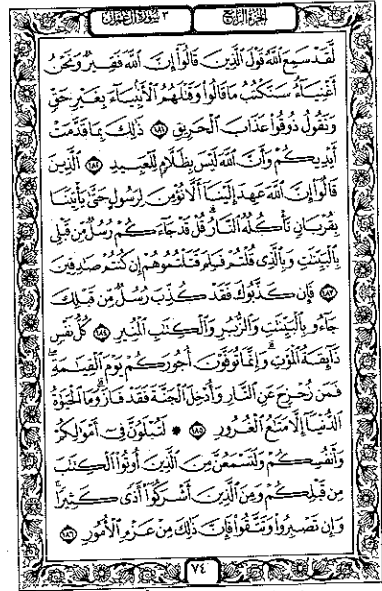 الجزء الرابع
٣ سورة آل عمران
لَّقَدْ سَمِعَ اللَّهُ قَوْلَ الَّذِينَ قَالُوا إِنَّ اللَّهَ فَقِيرٌ وَنَحْنُ
أَغْنِيَاءُ سَنَكْتُبُ مَا قَالُوا وَقَتْلَهُمُ الْأَنْبِيَاءَ بِغَيْرِ حَقٍّ
وَنَقُولُ ذُوقُوا عَذَابَ الْحَرِيقِ ١٨١ ذَٰلِكَ بِمَا قَدَّمَتْ
أَيْدِيكُمْ وَأَنَّ اللَّهَ لَيْسَ بِظَلَّامٍ لِّلْعَبِيدِ ١٨٢ الَّذِينَ
قَالُوا إِنَّ اللَّهَ عَهِدَ إِلَيْنَا أَلَّا نُؤْمِنَ لِرَسُولٍ حَتَّىٰ يَأْتِيَنَا
بِقُرْبَانٍ تَأْكُلُهُ النَّارُ قُلْ قَدْ جَاءَكُمْ رُسُلٌ مِّن قَبْلِي
بِالْبَيِّنَٰتِ وَبِالَّذِي قُلْتُمْ فَلِمَ قَتَلْتُمُوهُمْ إِن كُنتُمْ صَٰدِقِينَ
١٨٣ فَإِن كَذَّبُوكَ فَقَدْ كُذِّبَ رُسُلٌ مِّن قَبْلِكَ
جَاءُو بِالْبَيِّنَٰتِ وَالزُّبُرِ وَالْكِتَٰبِ الْمُنِيرِ ١٨٤ كُلُّ نَفْسٍ
ذَائِقَةُ الْمَوْتِ وَإِنَّمَا تُوَفَّوْنَ أُجُورَكُمْ يَوْمَ الْقِيَٰمَةِ
فَمَن زُحْزِحَ عَنِ النَّارِ وَأُدْخِلَ الْجَنَّةَ فَقَدْ فَازَ وَمَا الْحَيَوٰةُ
الدُّنْيَا إِلَّا مَتَٰعُ الْغُرُورِ ١٨٥ * لَتُبْلَوُنَّ فِي أَمْوَٰلِكُمْ
وَأَنفُسِكُمْ وَلَتَسْمَعُنَّ مِنَ الَّذِينَ أُوتُوا الْكِتَٰبَ
مِن قَبْلِكُمْ وَمِنَ الَّذِينَ أَشْرَكُوا أَذًى كَثِيرًا
وَإِن تَصْبِرُوا وَتَتَّقُوا فَإِنَّ ذَٰلِكَ مِنْ عَزْمِ الْأُمُورِ ١٨٦
٧٤